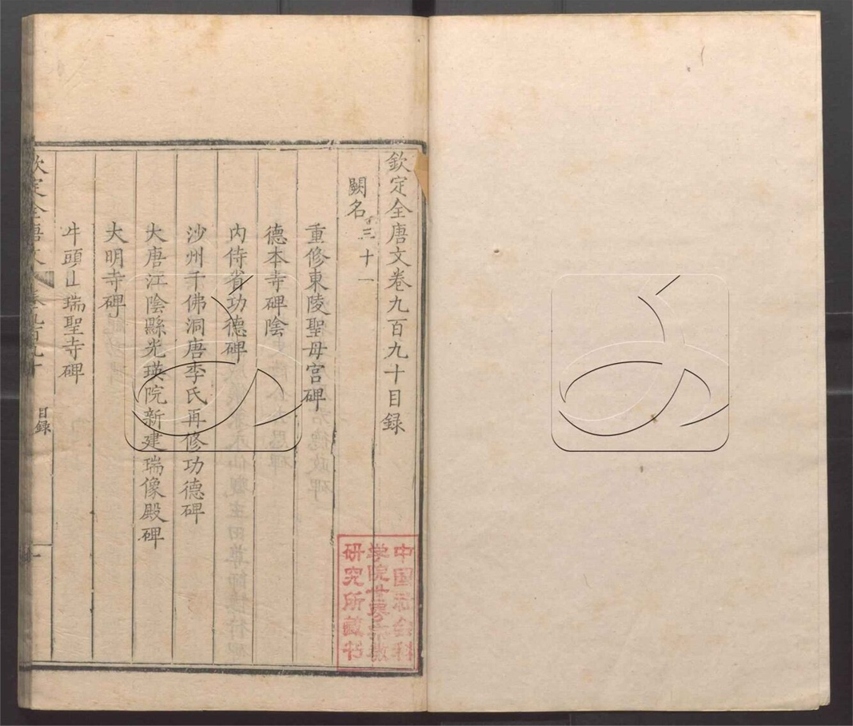 欽定全唐文卷九百九十目錄
闕名三十一
重修東陵聖母宮碑
德本寺碑陰
內侍省功德碑
沙州千佛洞唐李氏再修功德碑
大唐江陰縣光瑛院新建瑞像殿碑
大明寺碑
牛頭山瑞聖寺碑
欽定全唐文
卷九百九十
目錄
一
中国社会科
学院
研究所藏书